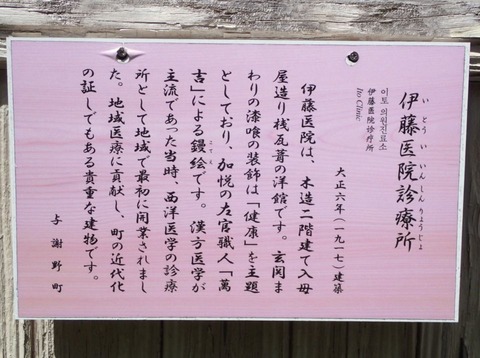 伊藤医院診療所
いとういいんしんりょうじょ
이토 의원진료소
伊藤医院诊疗所
Ito Clinic
大正六年(一九一七)建築
伊藤医院は、木造二階建て入母
屋造り桟瓦葺の洋館です。玄関ま
わりの漆喰の装飾は「健康」を主題
としており、加悦の左官職人「萬
吉」による鏝絵です。漢方医学が
主流であった当時、西洋医学の診療
所として地域で最初に開業されまし
た。地域医療に貢献し、町の近代化
の証しでもある貴重な建物です。
与謝野町